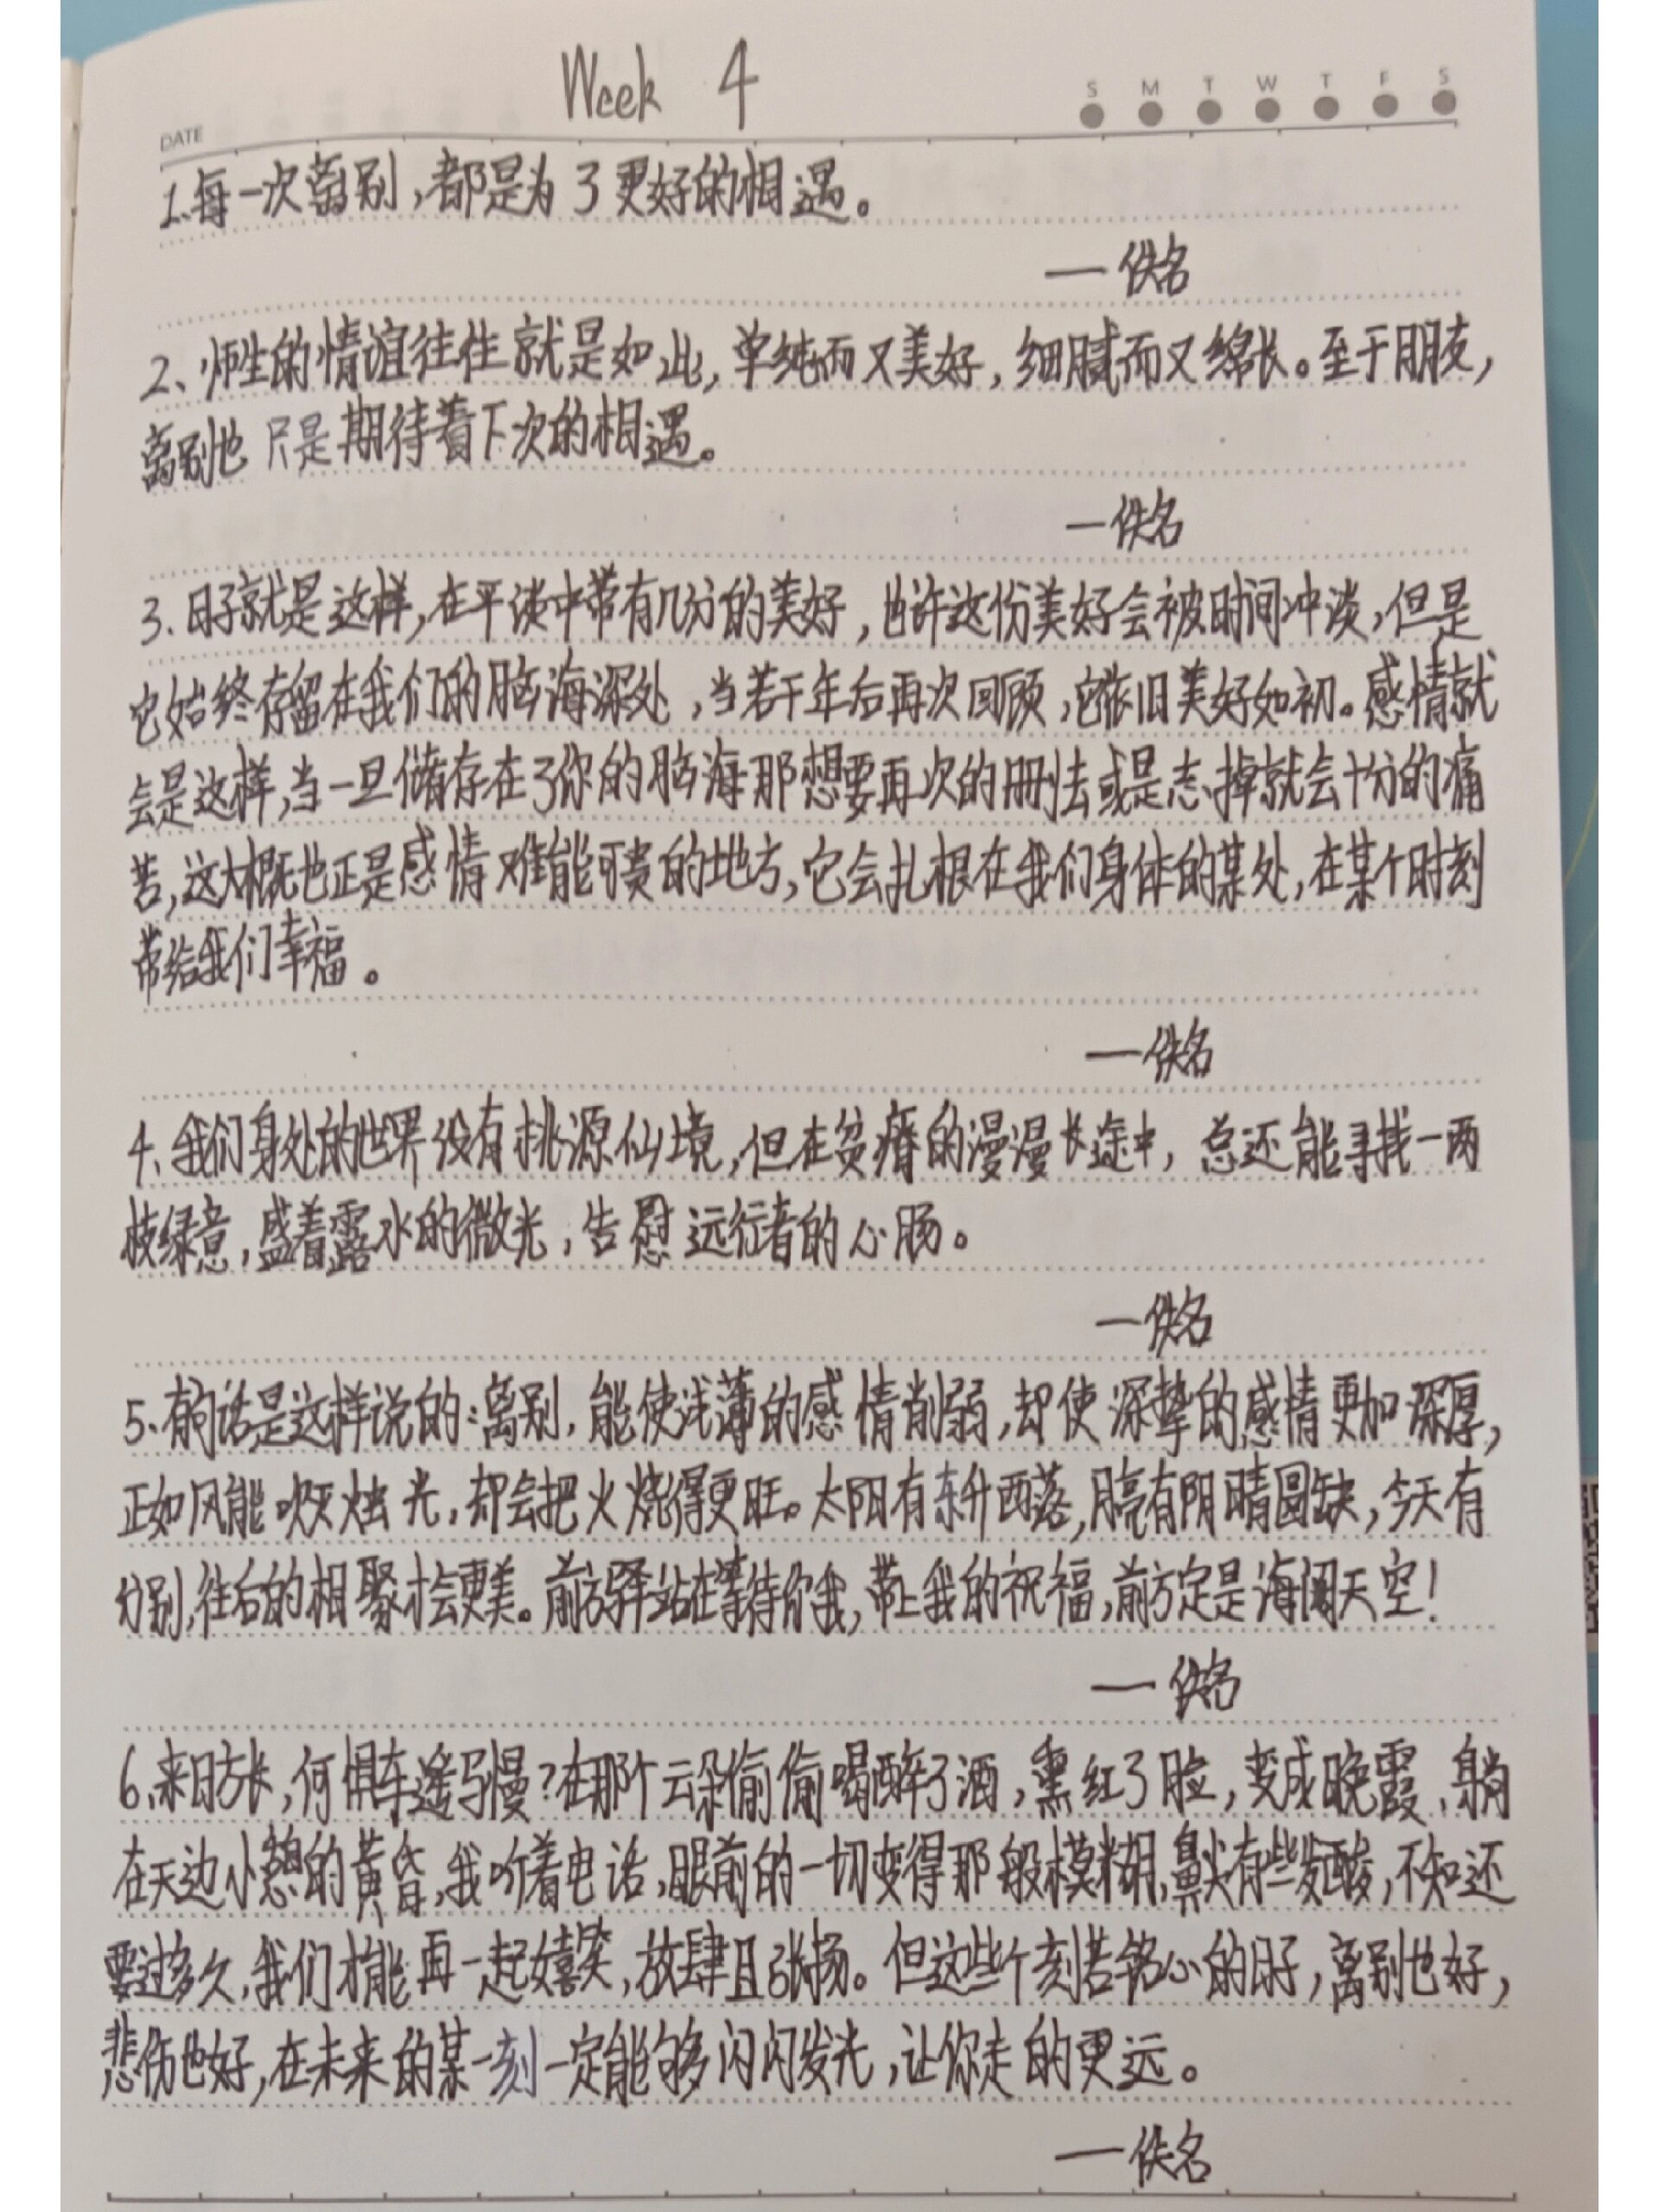 Week 4
DATE
S M T W T F S
1、每一次离别,都是为了更好的相遇。
— 佚名
2、师生的情谊往往就是如此,单纯而又美好,细腻而又绵长。至于朋友,
离别也只是期待着下次的相遇。
— 佚名
3、日子就是这样,在平淡中带有几分的美好,也许这份美好会被时间冲淡,但是
它始终存留在我们的脑海深处,当若干年后再次回顾,它依旧美好如初。感情就
会是这样,当一旦储存在了你的脑海那想要再次的删去或是忘掉就会十分的痛
苦,这大概也正是感情难能可贵的地方,它会扎根在我们身体的某处,在某个时刻
带给我们幸福。
— 佚名
4、我们身处的世界没有桃源仙境,但在贫瘠的漫漫长途中,总还能寻找一两
枝绿意,盛着露水的微光,告慰远行者的心肠。
— 佚名
5、有句话是这样说的:离别,能使浅薄的感情削弱,却使深挚的感情更加深厚,
正如风能吹灭烛光,却会把火烧得更旺。太阳有东升西落,月亮有阴晴圆缺,今天有
分别,往后的相聚才会更美。前方驿站在等待你我,带上我的祝福,前方定是海阔天空!
— 佚名
6、来日方长,何惧车遥马慢?在那个云朵偷偷喝醉了酒,熏红了脸,变成晚霞、躺
在天边小憩的黄昏,我听着电话,眼前的一切变得那般模糊,鼻尖有些发酸,不知还
要过多久,我们才能再一起嬉笑,放肆且张扬。但这些个刻苦铭心的日子,离别也好,
悲伤也好,在未来的某一刻一定能够闪闪发光,让你走的更远。
— 佚名